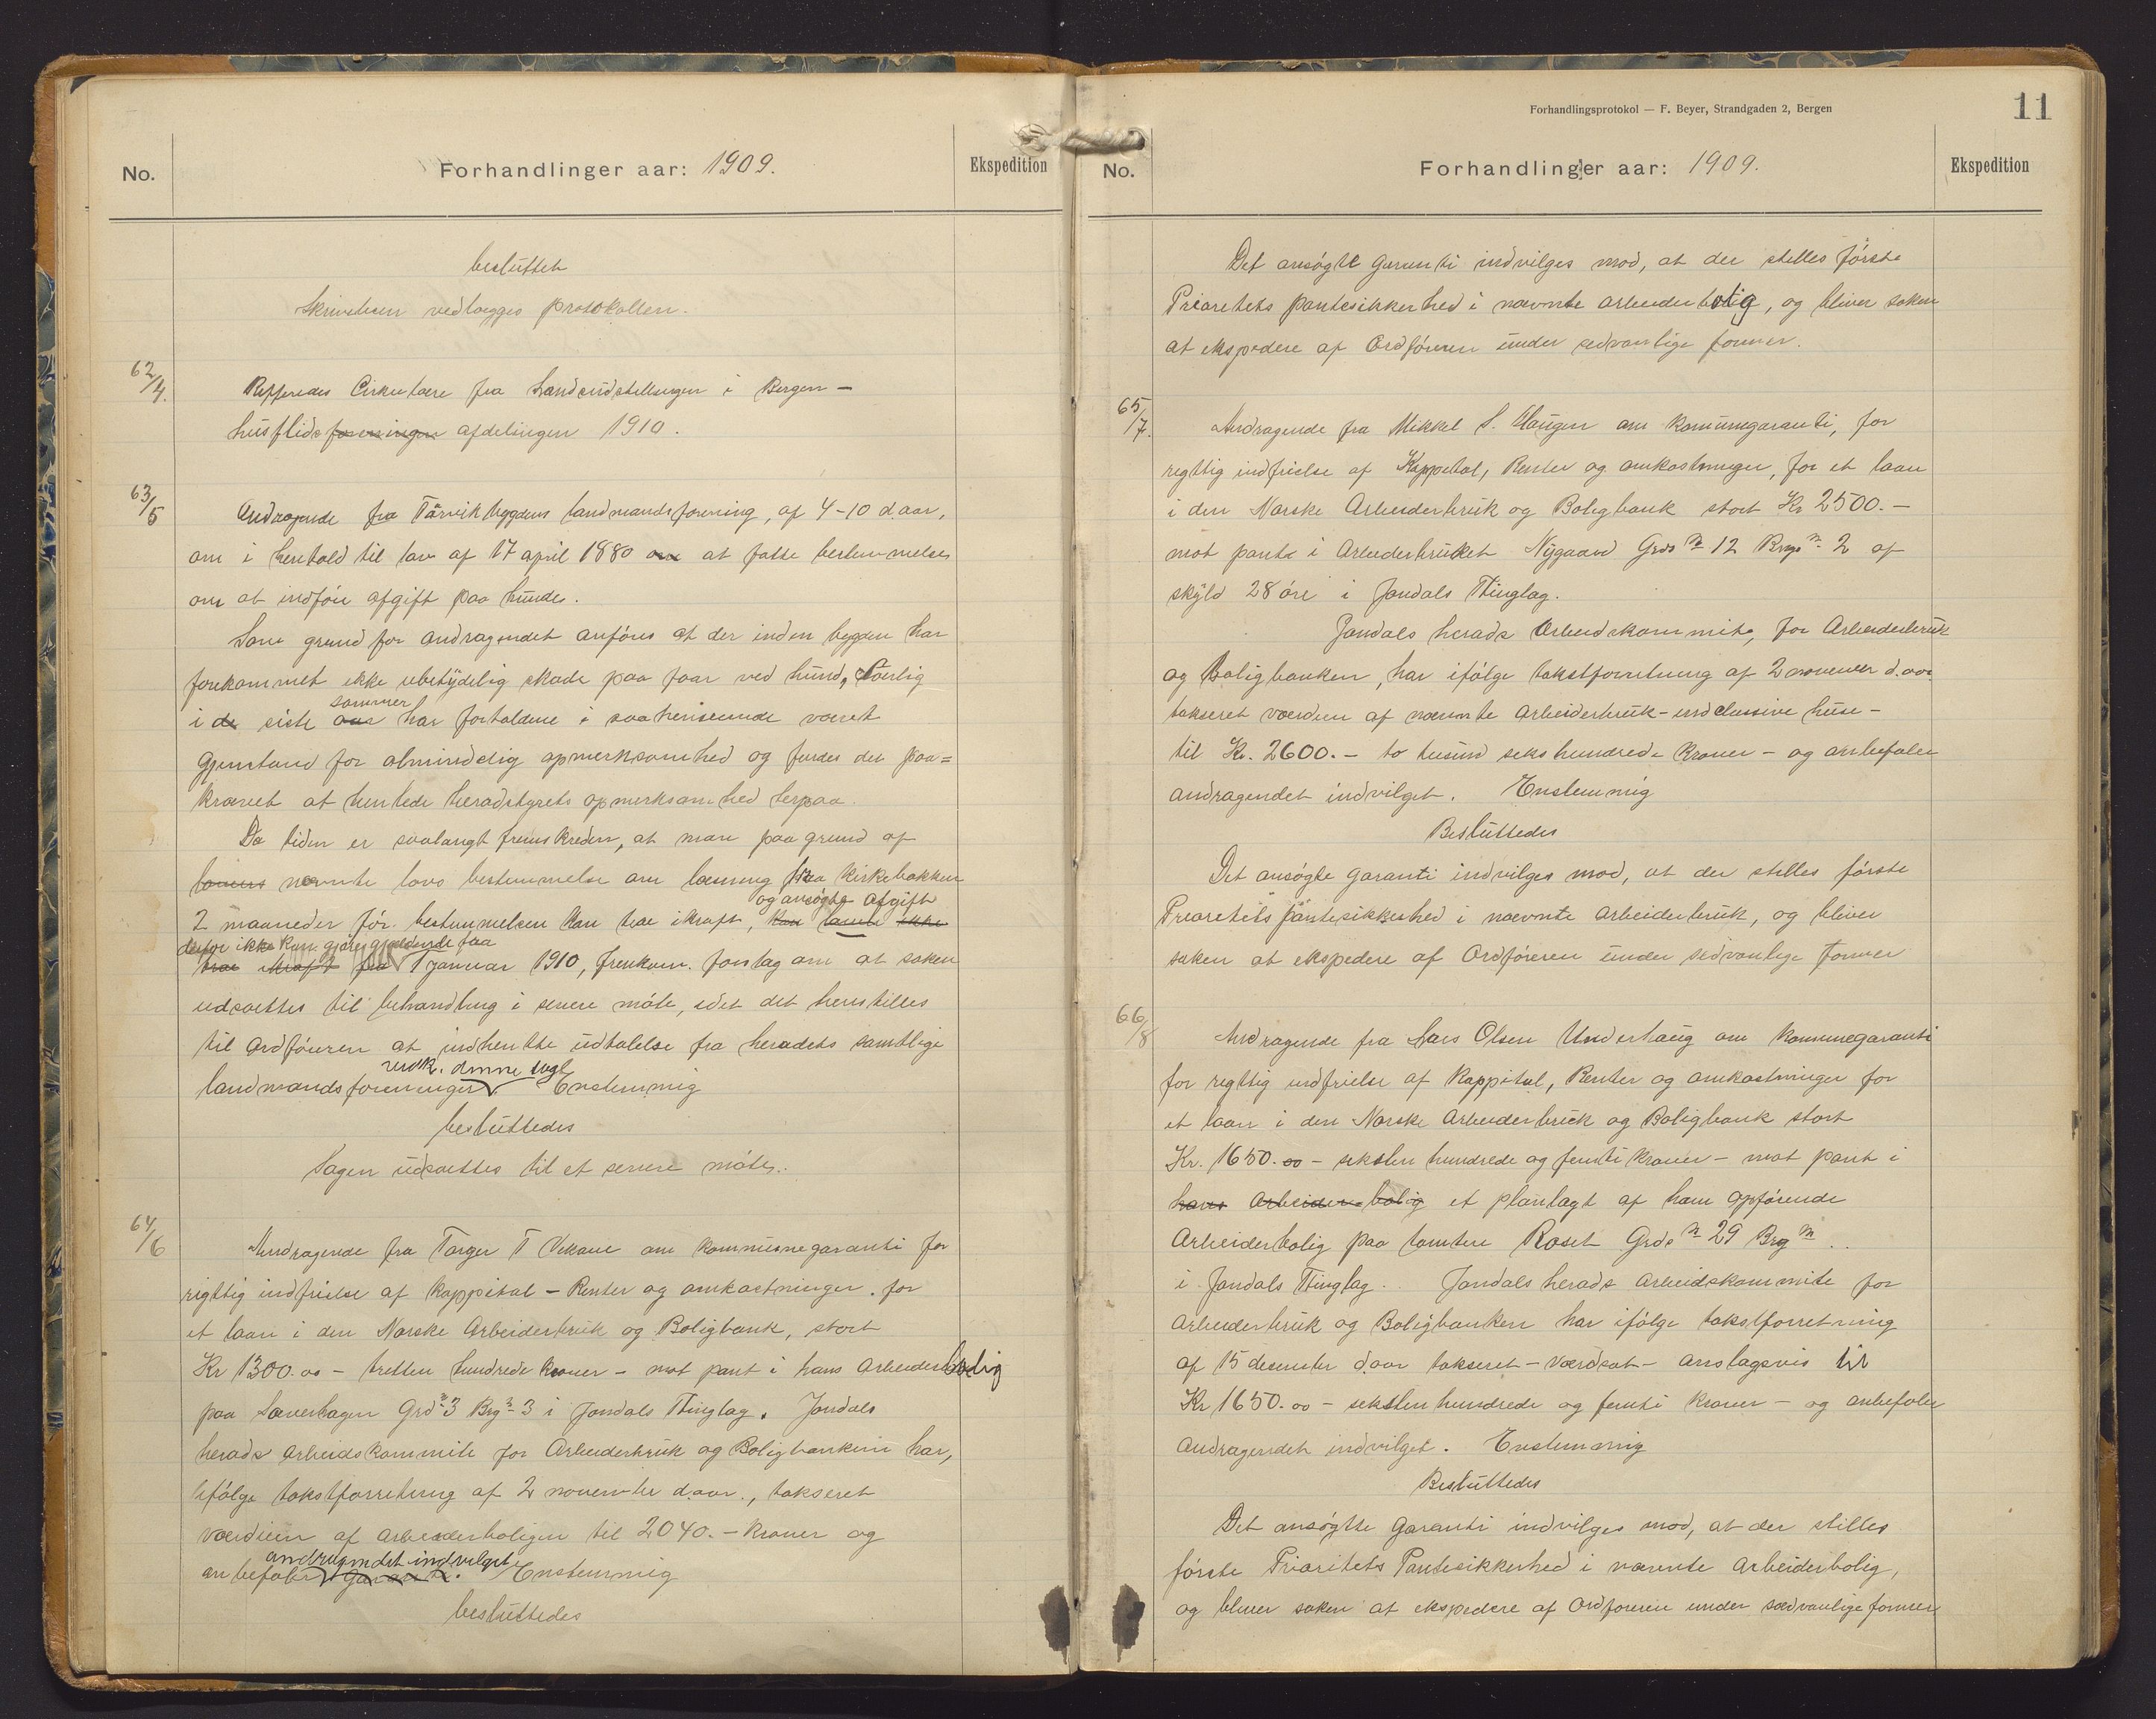 No.
Forhandlinger aar: 1909.
Ekspedition
besluttet
Skrivelsen vedlægges protokollen.
62/4.
Refferedes Cirkulære fra Landsudstillingen i Bergen -
husflids foreningen afdelingen 1910.
63/5
Andragende fra Tørvikbygdens landmandsforening, af 4-10 d. aar,
om i henhold til lov af 17 april 1880 om at fatte bestemmelse
om at indføre afgift paa hunde.
Som grund for andragendet anføres at der inden bygden har
forekommet ikke ubetydelig skade paa faar ved hund, særlig
i de siste aar sommer har forholdene i saa henseende været
gjenstand for almindelig opmerksomhed og findes det paa=
krævet at henlede heradstyrets opmerksomhed herpaa.
Da tiden er saalangt fremskreden, at man paa grund af
lovens nævnte lovs bestemmelse om læsning fra kirkebakken
2 maaneder før bestemmelsen kan træ i kraft, og ansøgte afgift kan ikke
derfor ikke kan gjøres gjældende fra
træ i kraft fra 1 januar 1910, fremkom forslag om at saken
udsættes til behandling i senere møte, idet det henstilles
til Ordføreren at indhente udtalelse fra heradets samtlige
landmandsforeninger denne Enstemmig
besluttedes
Sagen udsættes til et senere møte.
64/6
Andragende fra Torger T Vikane om kommunegaranti for
rigttig indfrielse af Kappital - Renter og omkostninger. for
et laan i den Norske Arbeiderbruk og Boligbank, stort
Kr 1300.00 - tretten hundrede kroner - mot pant i hans Arbeiderbolig
paa Løverhagen Grd n 3 Brg n 3 i Jondals Thinglag. Jondals
herads Arbeidskommite for Arbeiderbruk og Boligbanken har,
ifølge takstforretning af 2 november d.aar., takseret
værdien af arbeiderboligen til 2040.- kroner og
anbefaler andragendet indvilget. Garanti. Enstemmig
besluttedes
Forhandlingsprotokol — F. Beyer, Strandgaden 2, Bergen
11
No.
Forhandlinger aar: 1909.
Ekspedition
Det ansøgte garanti indvilges mod, at der stilles første
Prioretets pantesikkerhed i nævnte arbeiderbolig, og bliver saken
at ekspedere af Ordføreren under sedvanlige former.
65/7.
Andragende fra Mikkel S. Haugen om Komunegaranti, for
regttig indfrielse af Kappital, Renter og omkostninger, for et laan
i den Norske Arbeiderbruk og Boligbank stort Kr 2500.-
mot pante i Arbeiderbruket Nygaard Grds n 12 Brgs n 2 af
skyld 28 øre i Jondals Thinglag.
Jondals herads Arbeidskommite, for Arbeiderbruk
og Boligbanken, har ifølge takstforretning af 2 novemer d.aar
takseret værdien af nævnte arbeiderbruk - indclussive huse -
til Kr. 2600.- to tusind seks hundrede kroner - og anbefaler
andragendet indvilget. Enstemmig
Besluttedes
Det ansøgte garanti indvilges mod, at der stilles første
Prioretets pantesikkerhed i nævnte arbeiderbruk, og bliver
saken at ekspedere af Ordføreren under sedvanlige former
66/8
Andragende fra Lars Olsen Underhaug om Komunegaranti
for regttig indfrielse af Kappital, Renter og omkostninger for
et laan i den Norske Arbeiderbruk og Boligbank stort
Kr. 1650.00 - seksten hundrede og femti kroner - mot pant i
hans Arbeiderbolig et planlagt af ham opførende
Arbeiderbolig paa tomten Roset Grds n 29 Brg n ..
i Jondals Thinglag. Jondals herads Arbeidskommite for
Arbeiderbruk og Boligbanken har ifølge takstforretning
af 15 desember d.aar takseret - værdsat - anslagsvis til
Kr 1650.00 - seksten hundrede og femti kroner - og anbefaler
andragendet indvilget. Enstemmig
Besluttedes
Det ansøgtte garanti indvilges mod, at der stilles
første Prioritets Pantesikkerhed i nævnte arbeiderbolig,
og bliver saken at ekspedere af Ordføreren under sædvanlige former